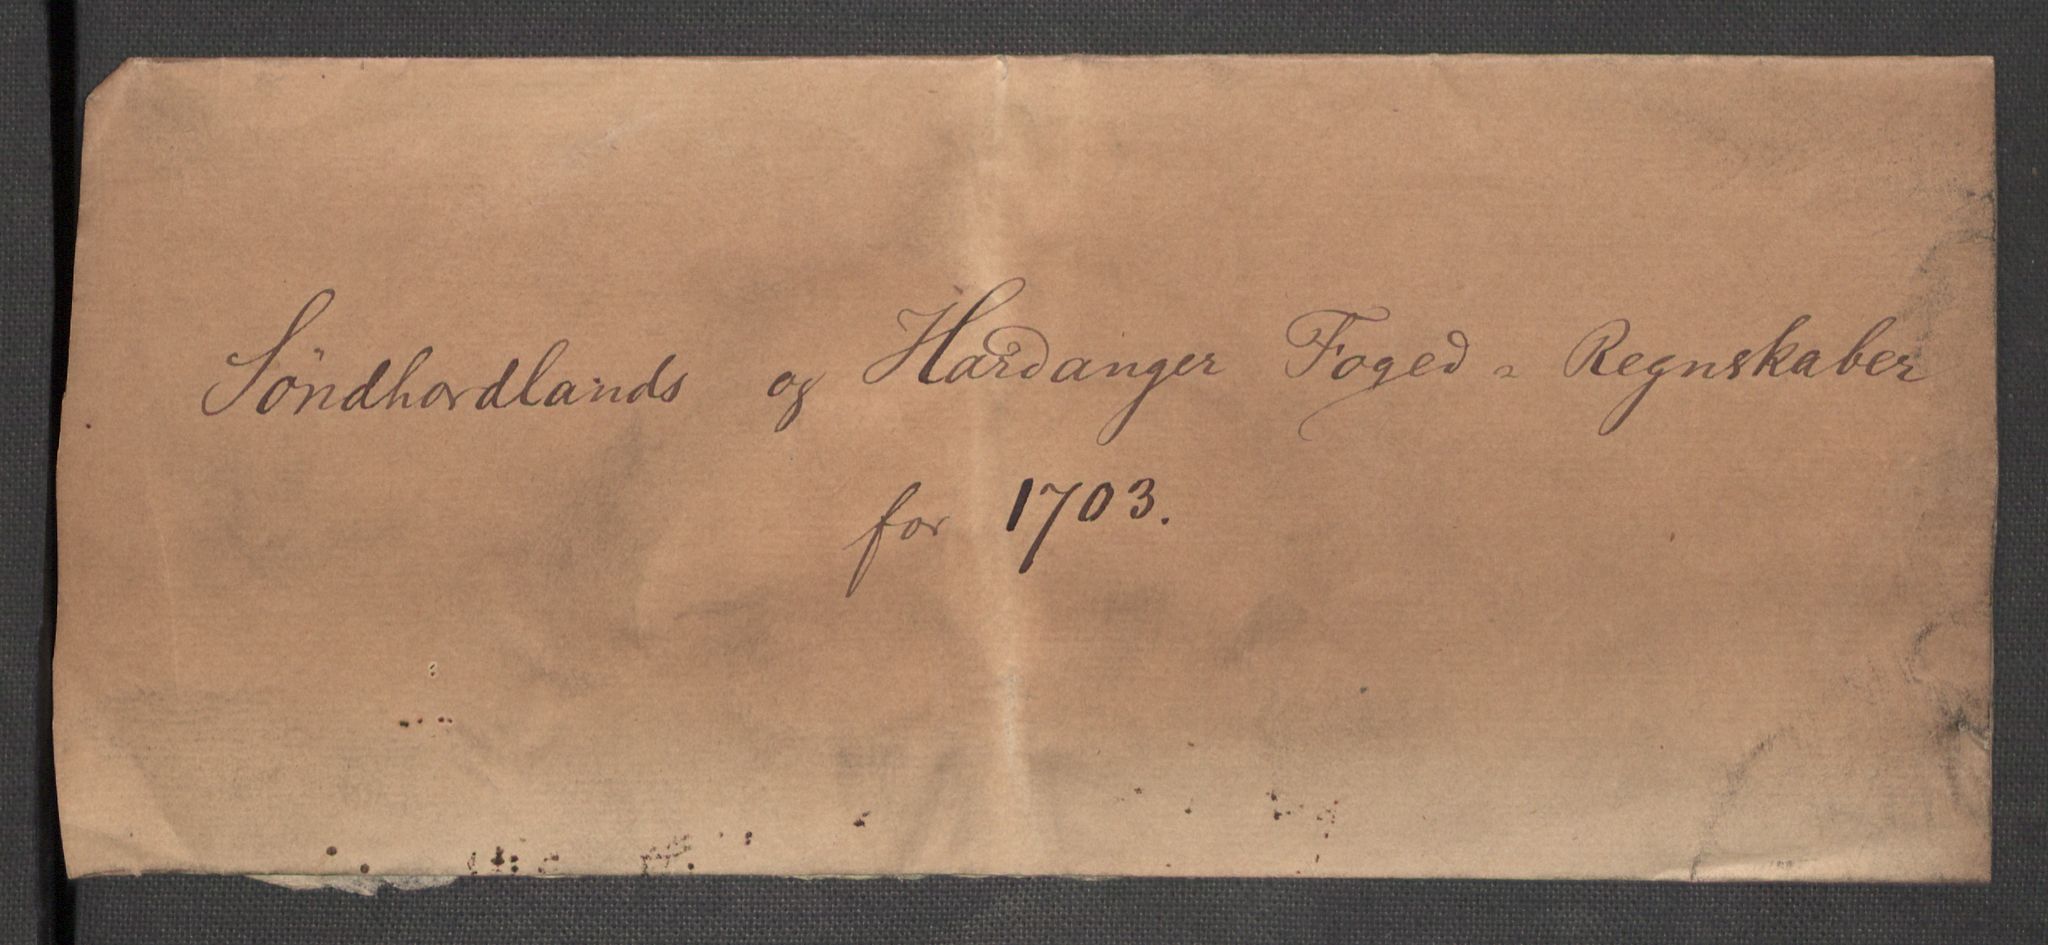 Söndhordlands og Hardanger Foged - Regnskaber
for 1703.